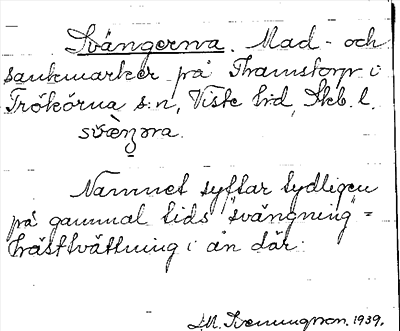 Svängerna. Mad- och
sankmarker på Thamstorp i
Trökörna s:n, Viste hd, Skb. l.
svæ̀ŋəra.
Namnet syftar tydligen
på gammal tids "svängning" =
hästtvättning i ån där.
J.M. Svenningson. 1939.